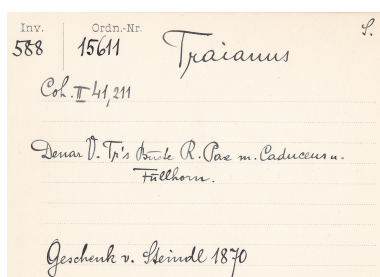 Inv.
Ordn.-Nr.
S.
588
15611
Traianus
Coh. II 41,211
Denar V. Tr's Büste R. Pax m. Caduceus u.
Füllhorn.
Geschenk v. Steindl 1870